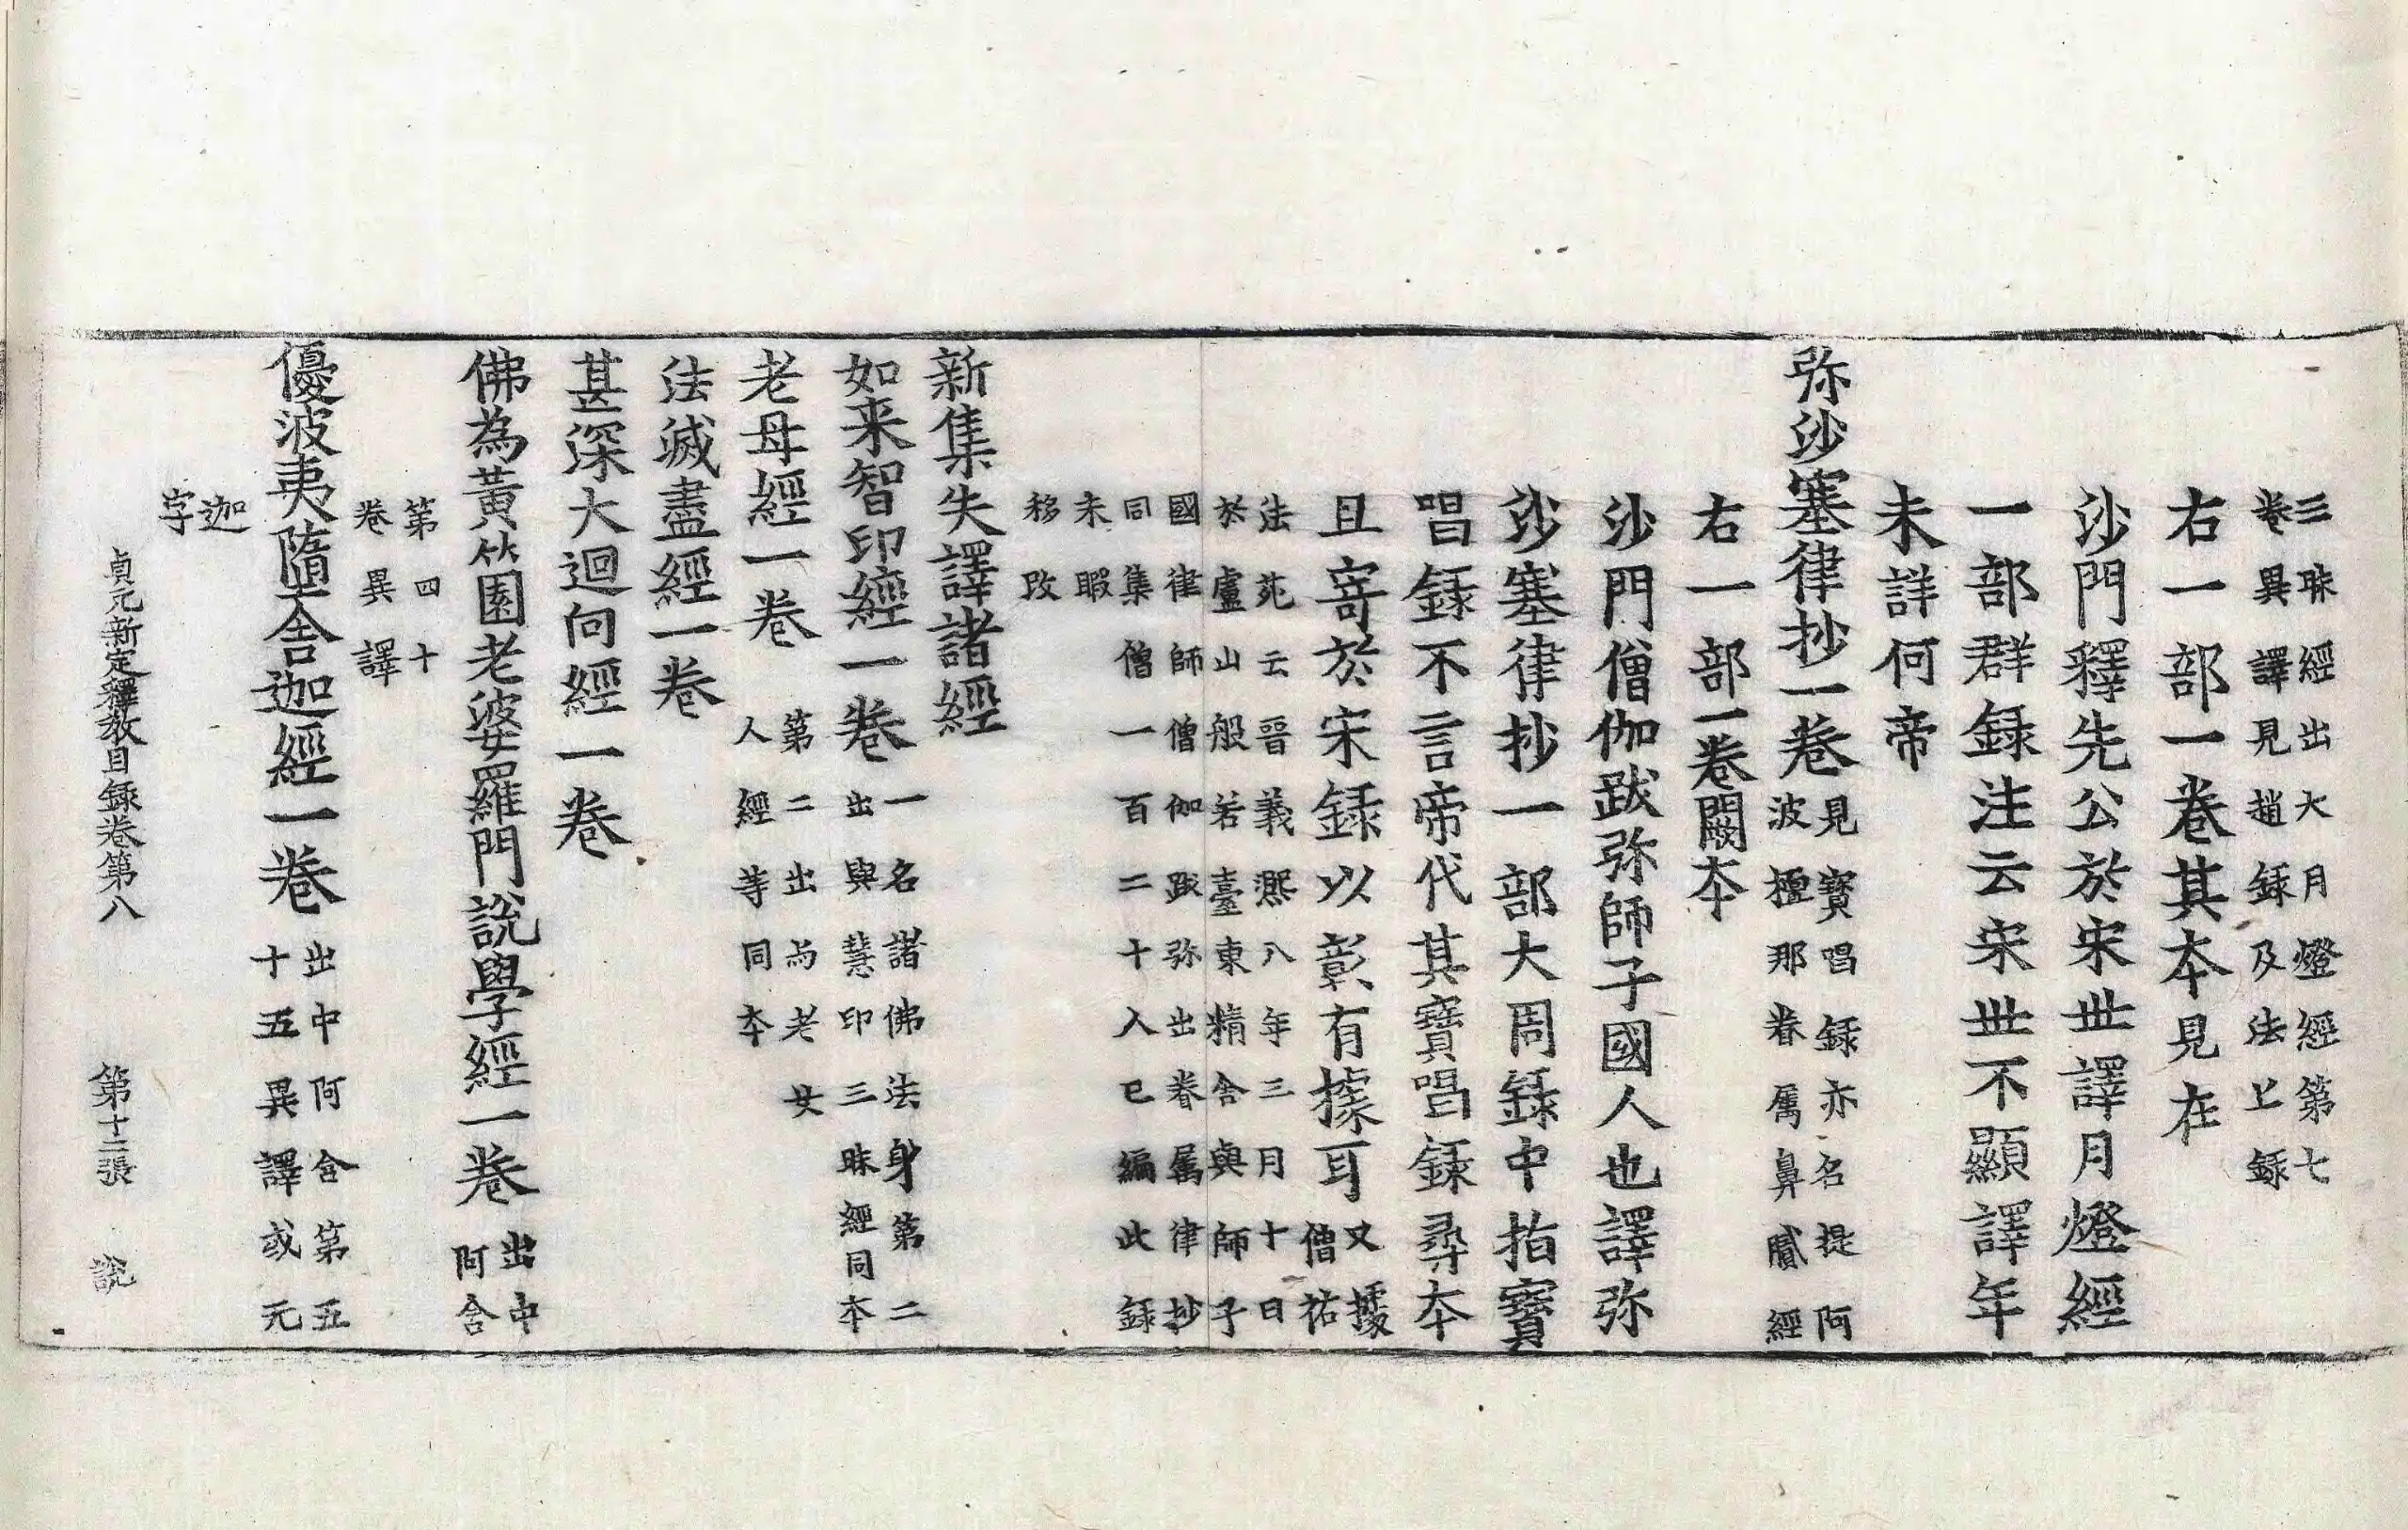 三昧經出大月燈經第七
卷異譯見趙録及法上録
右一部一卷其本見在
沙門釋先公於宋世譯月燈經
一部群録注云宋世不顯譯年
未詳何帝
弥沙塞律抄一卷見寶唱録亦名提阿
波檀那眷属鼻膩經
右一部一卷闕本
沙門僧伽跋弥師子國人也譯弥
沙塞律抄一部大周録中指寶
唱録不言帝代其寶唱録尋本
且寄於宋録以彰有據耳又據
僧祐
法苑云晉義熈八年三月十日
於廬山般若臺東精舍與師子
國律師僧伽跋弥出眷属律抄
同集僧一百二十人已編此録
未暇
移改
新集失譯諸經
如来智印經一卷一名諸佛法身第二
出與慧印三昧經同本
老母經一卷第二出与老女
人經等同本
法滅盡經一卷
甚深大迴向經一卷
佛為黃竹園老婆羅門說學經一卷出中
阿含
第四十
卷異譯
優波夷隋舍迦經一卷出中阿含第五
十五異譯或元
迦
字
貞元新定釋教目録卷第八 第十二張 說